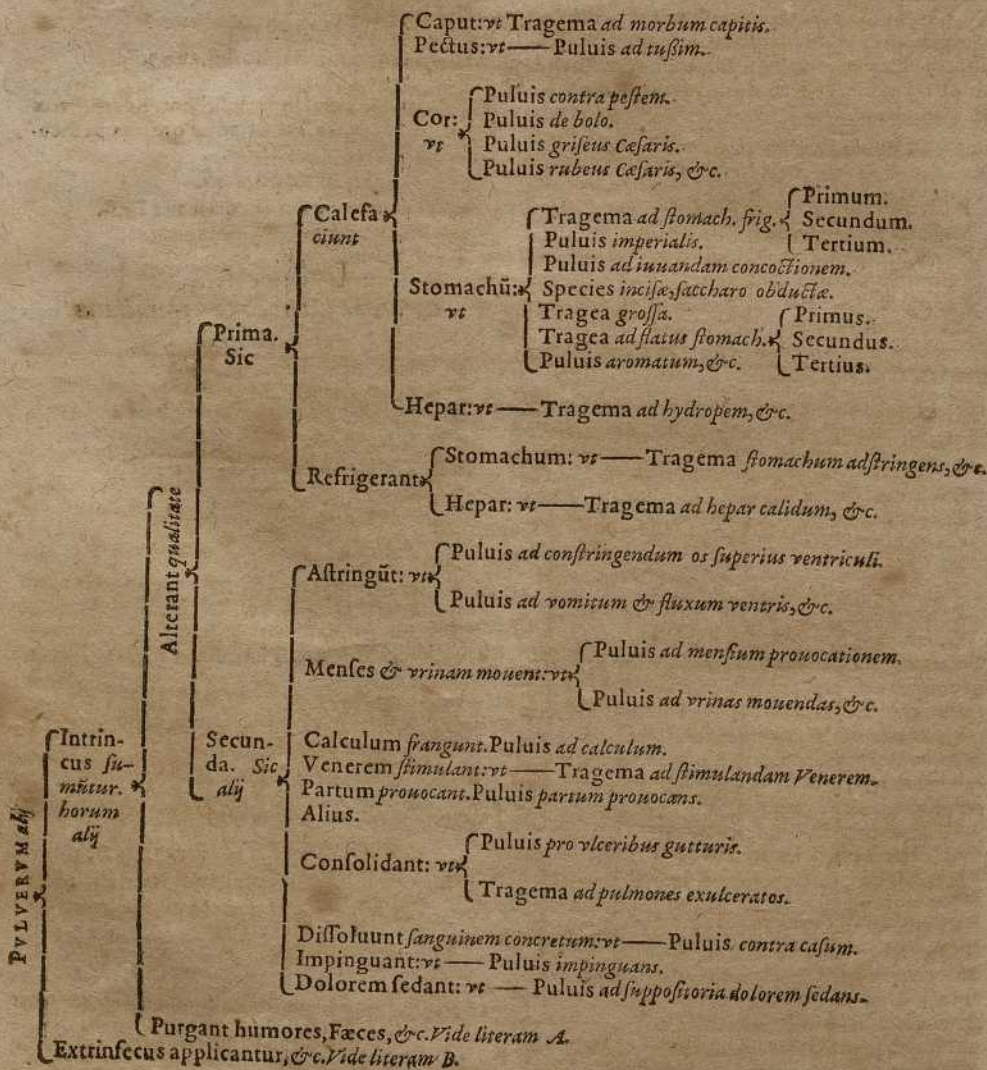 Caput: vt Tragema ad morbum capitis.
Pectus: vt — Puluis ad tußim.
Cor: vt
Puluis contra pestem.
Puluis de bolo.
Puluis griseus Cæsaris.
Puluis rubeus Cæsaris, &c.
Calefa
ciunt
Tragema ad stomach. frig.
Primum.
Secundum.
Tertium.
Puluis imperialis.
Puluis ad iuuandam concoctionem.
Stomachū: vt
Species incisæ, saccharo obductæ.
Tragea grossa.
Tragea ad flatus stomach.
Primus.
Secundus.
Tertius.
Puluis aromatum, &c.
Prima.
Sic
Hepar: vt — Tragema ad hydropem, &c.
Refrigerant
Stomachum: vt — Tragema stomachum adstringens, &c.
Hepar: vt — Tragema ad hepar calidum, &c.
Alterant qualitate
Astringūt: vt
Puluis ad constringendum os superius ventriculi.
Puluis ad vomitum & fluxum ventris, &c.
Menses & vrinam mouent: vt
Puluis ad mensium prouocationem.
Puluis ad vrinas mouendas, &c.
Intrin-
cus su-
mūtur.
horum
alij
Secun-
da. Sic
alij
Calculum frangunt. Puluis ad calculum.
Venerem stimulant: vt — Tragema ad stimulandam Venerem.
Partum prouocant. Puluis partum prouocans.
Alius.
Consolidant: vt
Puluis pro vlceribus gutturis.
Tragema ad pulmones exulceratos.
PVLVERVM alij
Dissoluunt sanguinem concretum: vt — Puluis contra casum.
Impinguant: vt — Puluis impinguans.
Dolorem sedant: vt — Puluis ad suppositoria dolorem sedans.
Purgant humores, Fæces, &c. Vide literam A.
Extrinsecus applicantur, &c. Vide literam B.